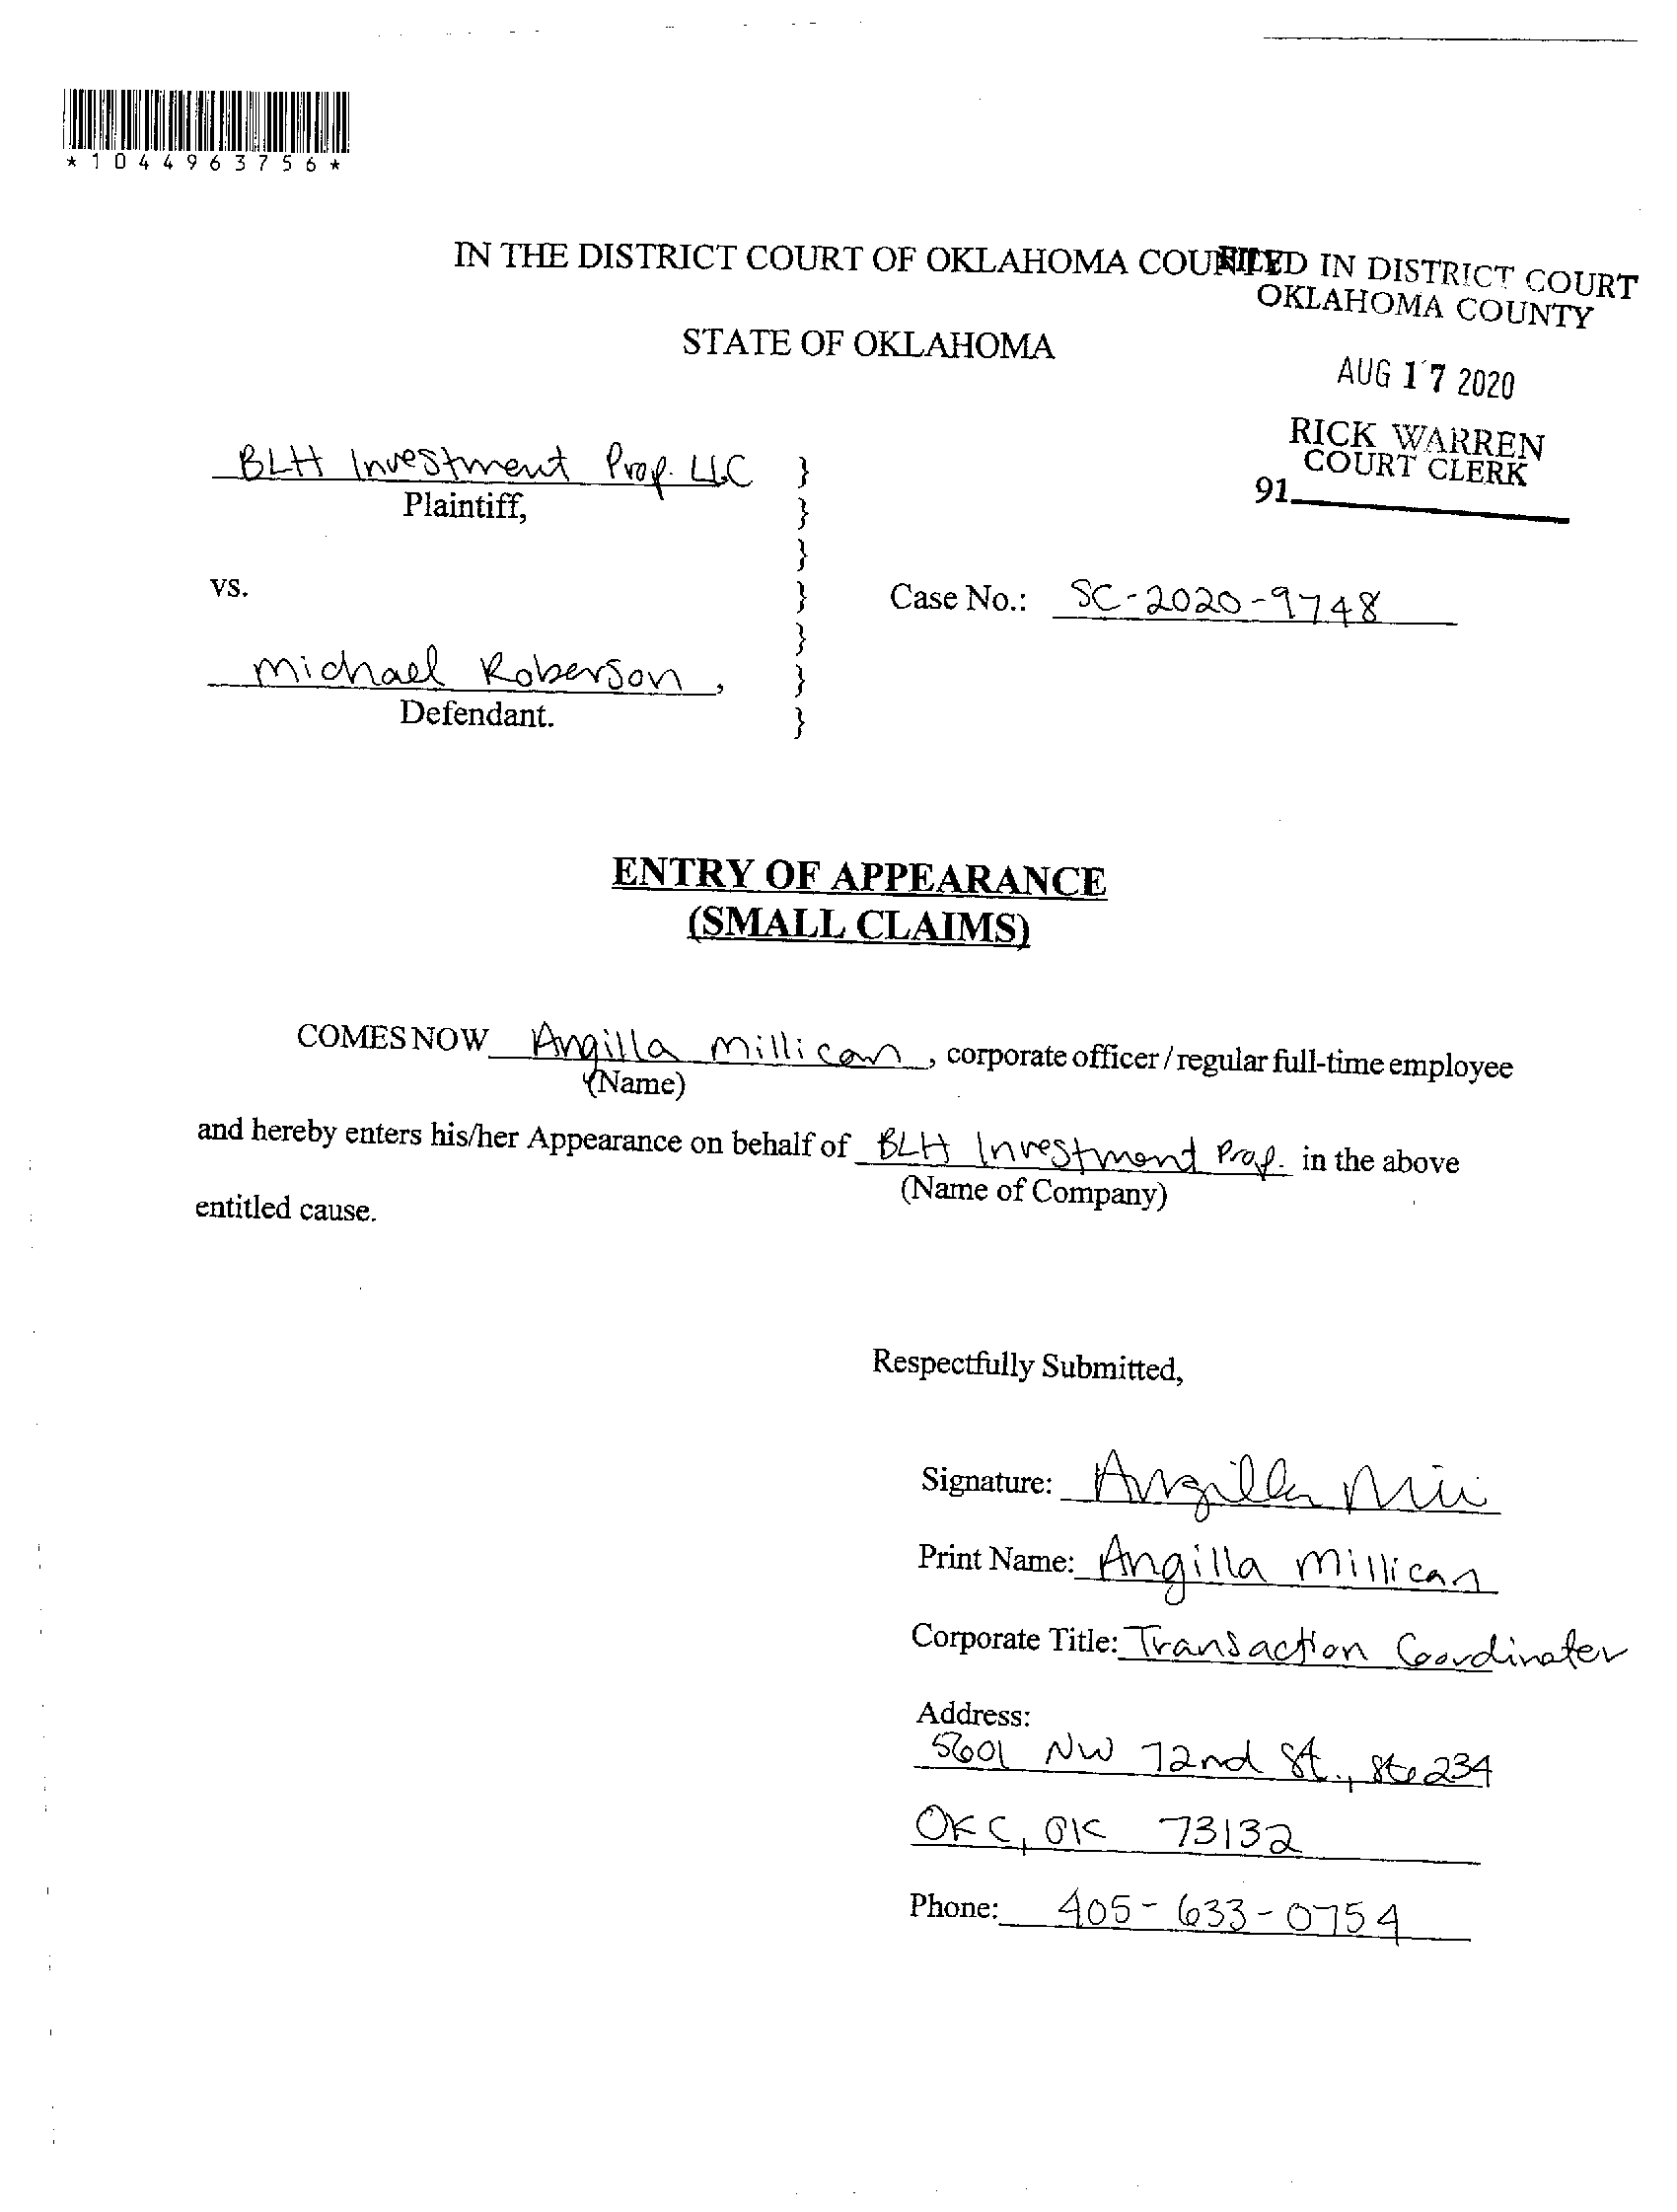 *1044963756*
IN THE DISTRICT COURT OF OKLAHOMA COUNTY
FILED IN DISTRICT COURT
OKLAHOMA COUNTY
STATE OF OKLAHOMA
AUG 17 2020
RICK WARREN
COURT CLERK
91
BLH Investment Prop. LLC }
Plaintiff, }
}
vs. } Case No.: SC-2020-9748
}
Michael Roberson, }
Defendant. }
ENTRY OF APPEARANCE
(SMALL CLAIMS)
COMES NOW Angilla Millican, corporate officer/regular full-time employee
(Name)
and hereby enters his/her Appearance on behalf of BLH Investment Prop. in the above
(Name of Company)
entitled cause.
Respectfully Submitted,
Signature: Angilla Mii
Print Name: Angilla Millican
Corporate Title: Transaction Coordinator
Address:
5601 NW 72nd St., Ste 234
OKC, OK 73132
Phone: 405-633-0754